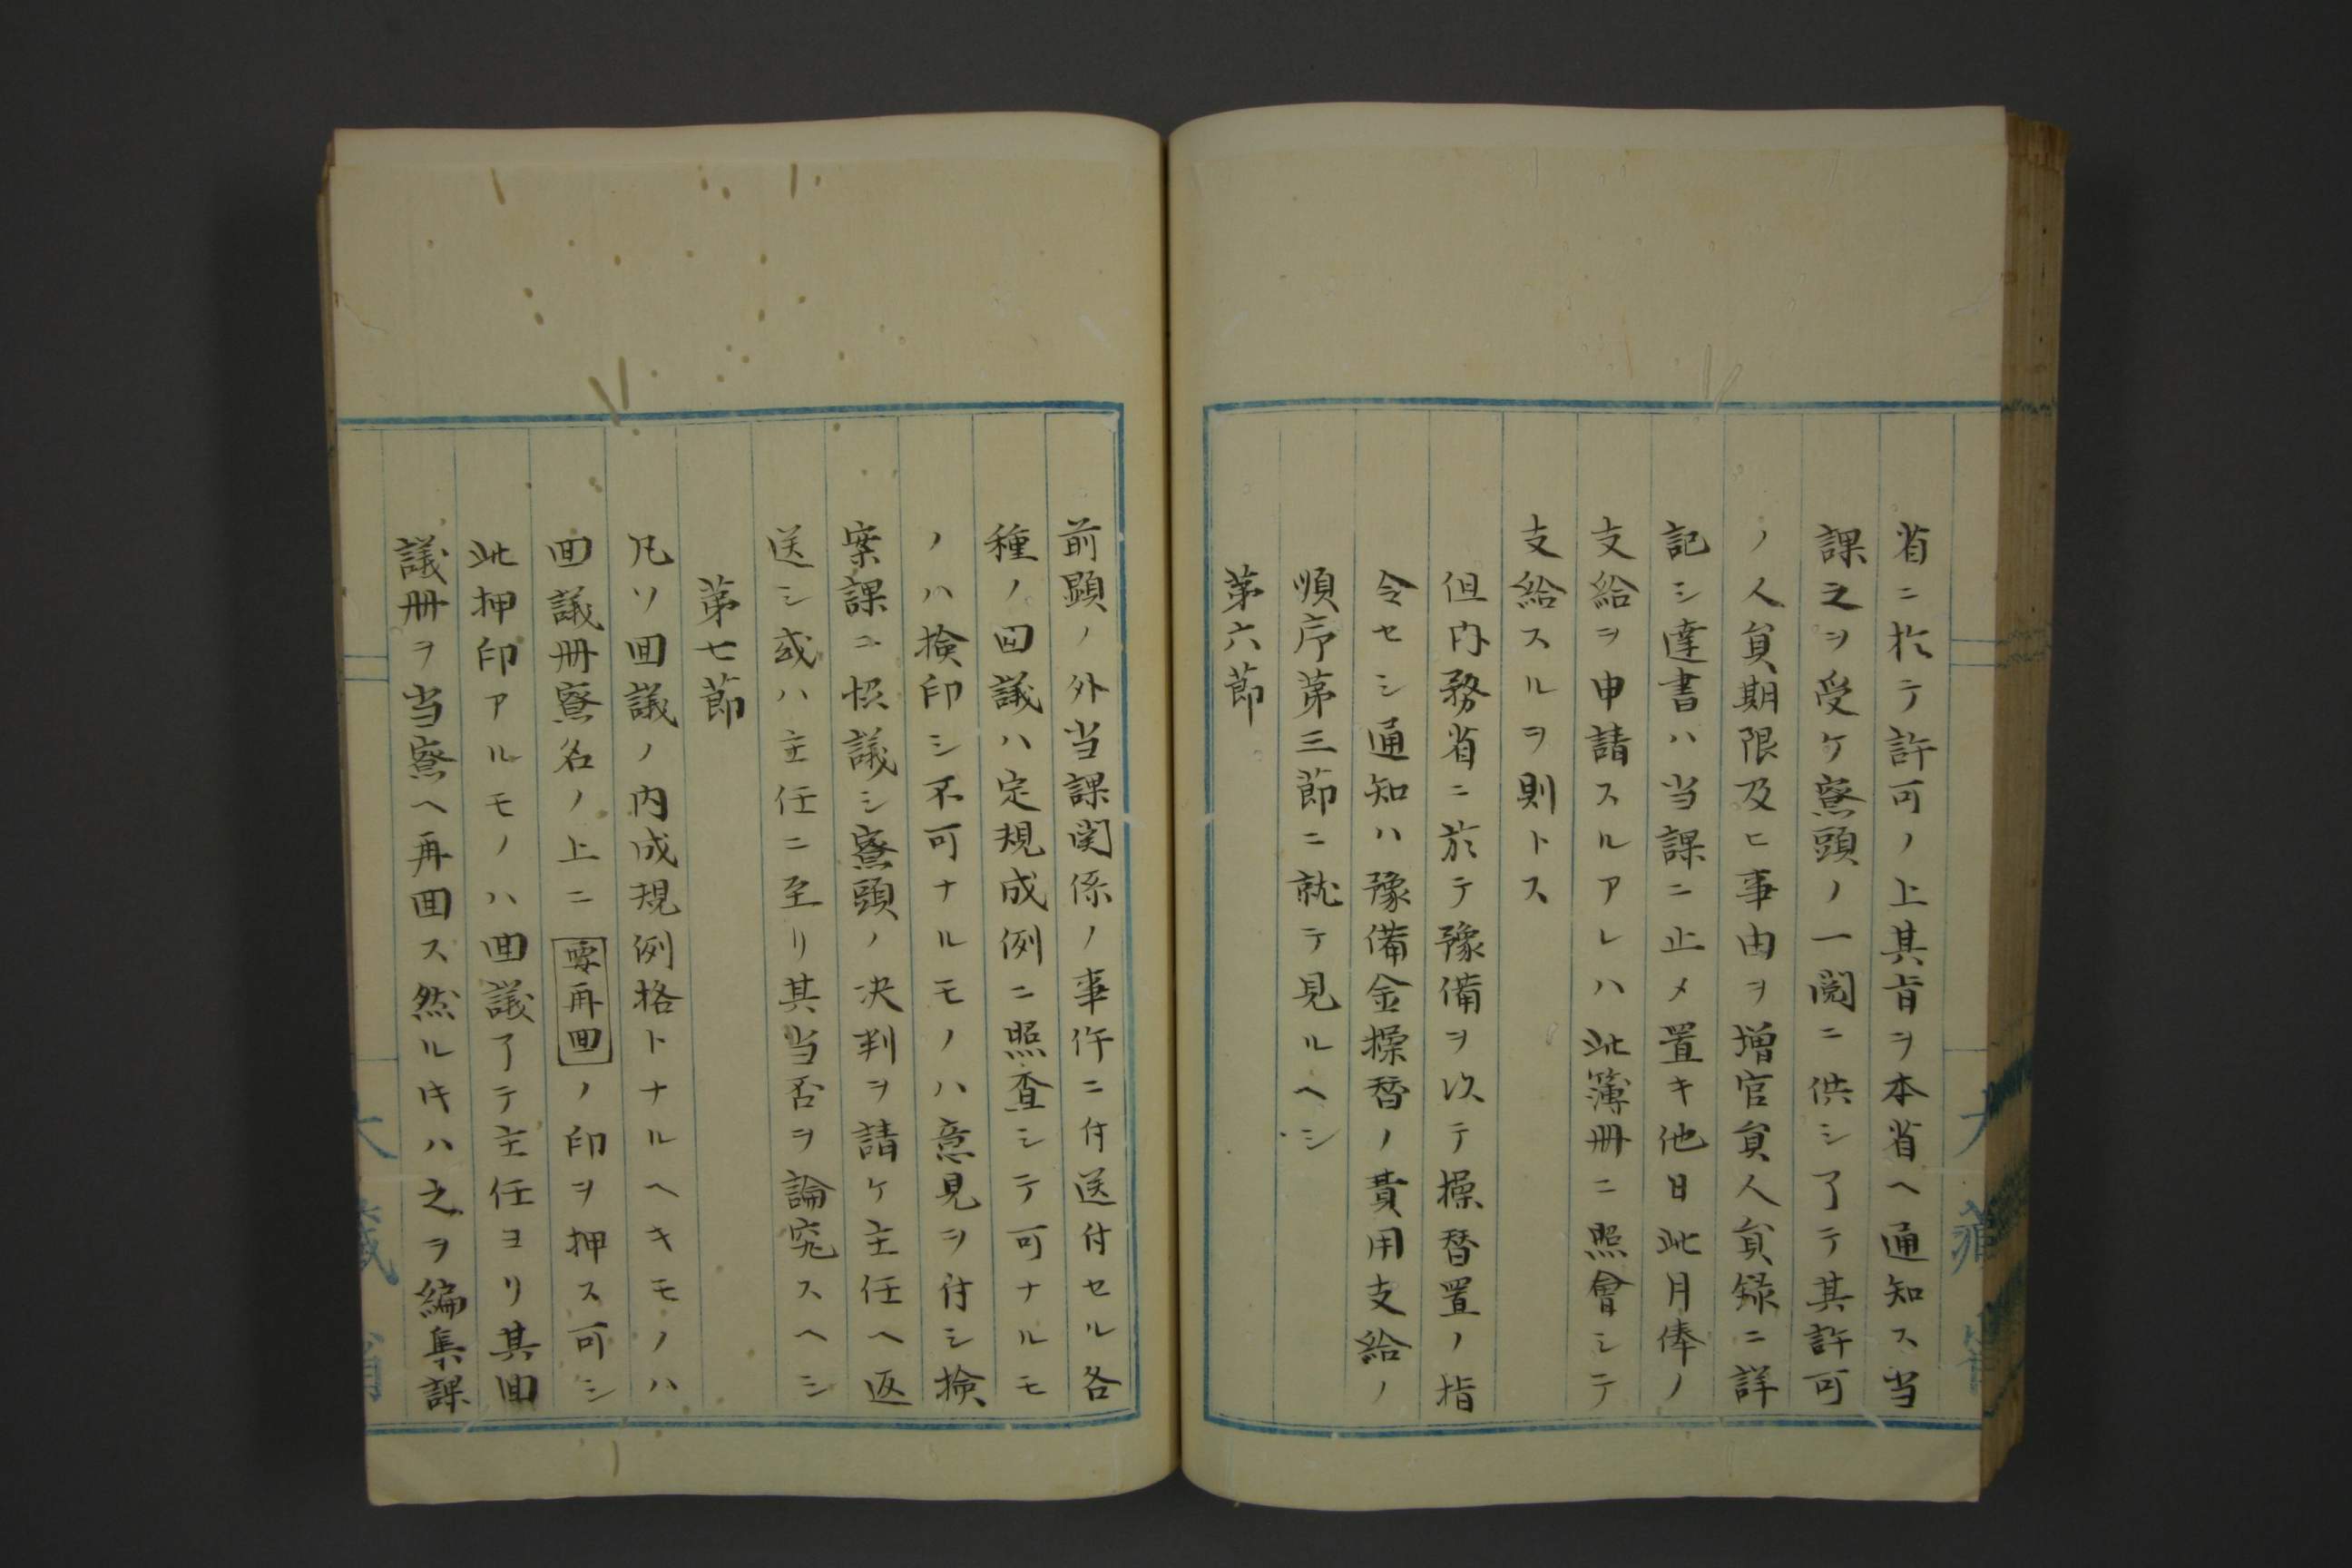 省ニ於テ許可ノ上其旨ヲ本省ヘ通知ス当
課之ヲ受ケ寮頭ノ一閲ニ供シ了テ其許可
ノ人員期限及ヒ事由ヲ増官員人員録ニ詳
記シ達書ハ当課ニ止メ置キ他日此月俸ノ
支給ヲ申請スルアレハ此簿冊ニ照會シテ
支給スルヲ則トス
但内務省ニ於テ豫備ヲ以テ操替置ノ指
令セシ通知ハ豫備金操替ノ費用支給ノ
順序第三節ニ就テ見ルヘシ
第六節
前顕ノ外当課関係ノ事件ニ付送付セル各
種ノ回議ハ定規成例ニ照査シテ可ナルモ
ノハ検印シ不可ナルモノハ意見ヲ付シ検
案課ニ恊議シ寮頭ノ决判ヲ請ケ主任ヘ返
送シ或ハ主任ニ至リ其当否ヲ論究スヘシ
第七節
凡ソ回議ノ内成規例格トナルヘキモノハ
回議冊寮名ノ上ニ要再回ノ印ヲ押ス可シ
此押印アルモノハ回議了テ主任ヨリ其回
議冊ヲ当寮ヘ再回ス然ルキハ之ヲ編集課
大藏省